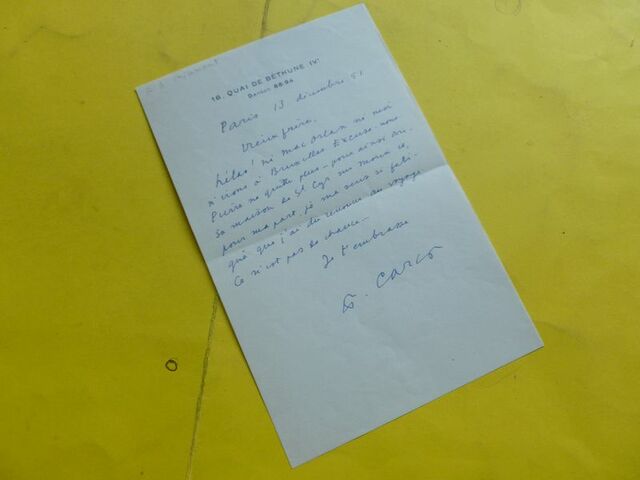 18 QUAI DE BÉTHUNE IVᵉ
Paris 13 décembre 51
Vieux frère,
hélas! ni Mac Orlan ni moi
n'irons à Bruxelles Excuse-nous
Pierre ne quitte plus - pour ainsi dire
sa maison de St Cyr sur Morin et,
pour ma part, je me sens si fati-
gué que j'ai du renoncer au voyage
Ce n'est pas de chance -
Je t'embrasse
F. Carco